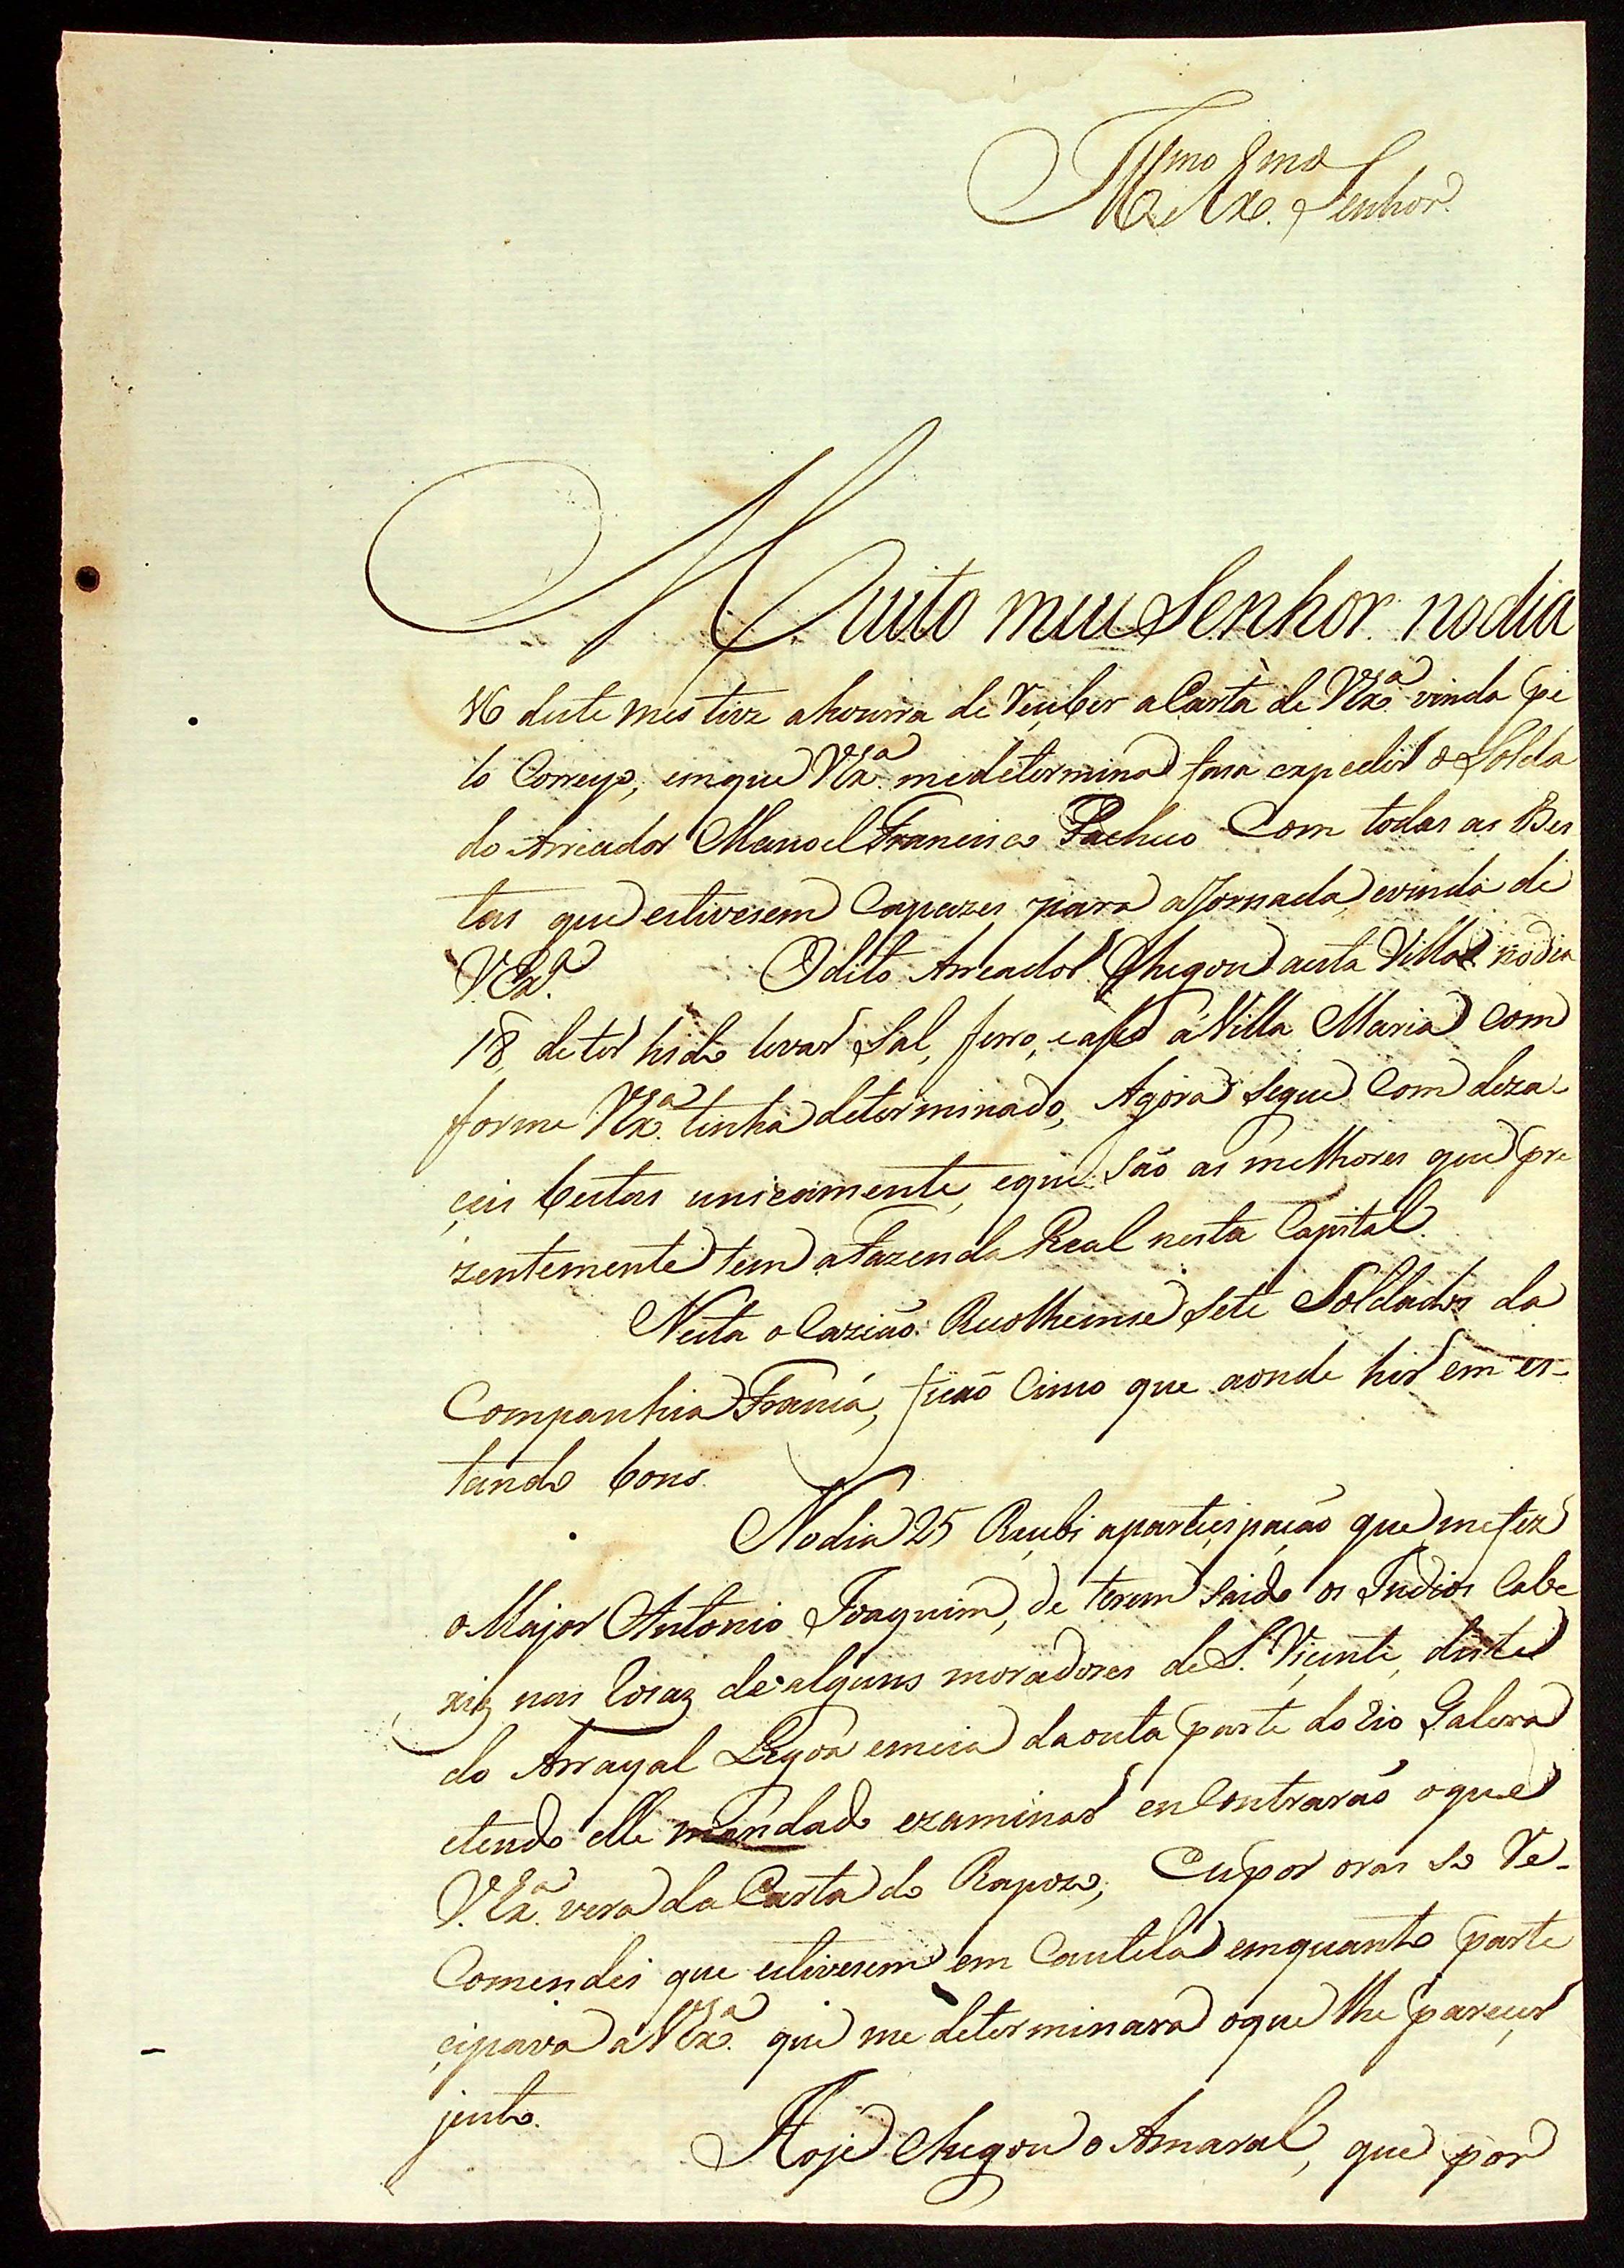 Ill.mo e Ex.mo Senhor.
Muito meu Senhor. no dia
16 deste mes tive a honrra de Reçeber a Carta de V. Ex.a vinda pe
lo Correyo, em que V. Ex.a me determina fasa expedir o Solda
do Arriador Manoel Francisco Pacheco Com todas as Bes
tas que estivesem Capazes para a Jornada, e vinda de
V. Ex.a O dito Arreador Chegou a esta Villa no dia
18, de ter hido levar Sal, ferro, e aso á Villa Maria Com
forme V. Ex.a tinha determinado, Agora Segue Com deza
çeis bestas unicamente, e que São as melhores que pre
zentemente tem a Fazenda Real nesta Capital.
Nesta o Cazião Recolhemse Sete Soldados da
Companhia Franca, ficão Cinco que aonde hir em es-
tando bons.
No dia 25 Reçebi a parteçipação que me fez
o Major Antonio Joaquim, de terem Saido os Indios Cabe
xiz nas Rosaz de alguns moradores de S. Viçente, diste
do Arrayal Legoa e meia da outa parte do Rio Galera
e tendo elle mandado examinar enContrarão o que
V. Ex.a vera da Carta do Rapozo; Eu por oras so Re-
Comendei que estivesem em Cautela em quanto parte
çipava a V. Ex.a que me determinara o que lhe pareçer
justo.
Hoje Chegou o Amaral, que por